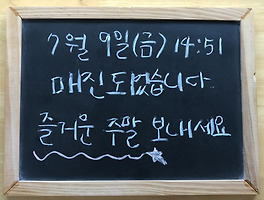 7월 9일(금) 14:51
매진도없습니다
즐거운 주말 보내세요